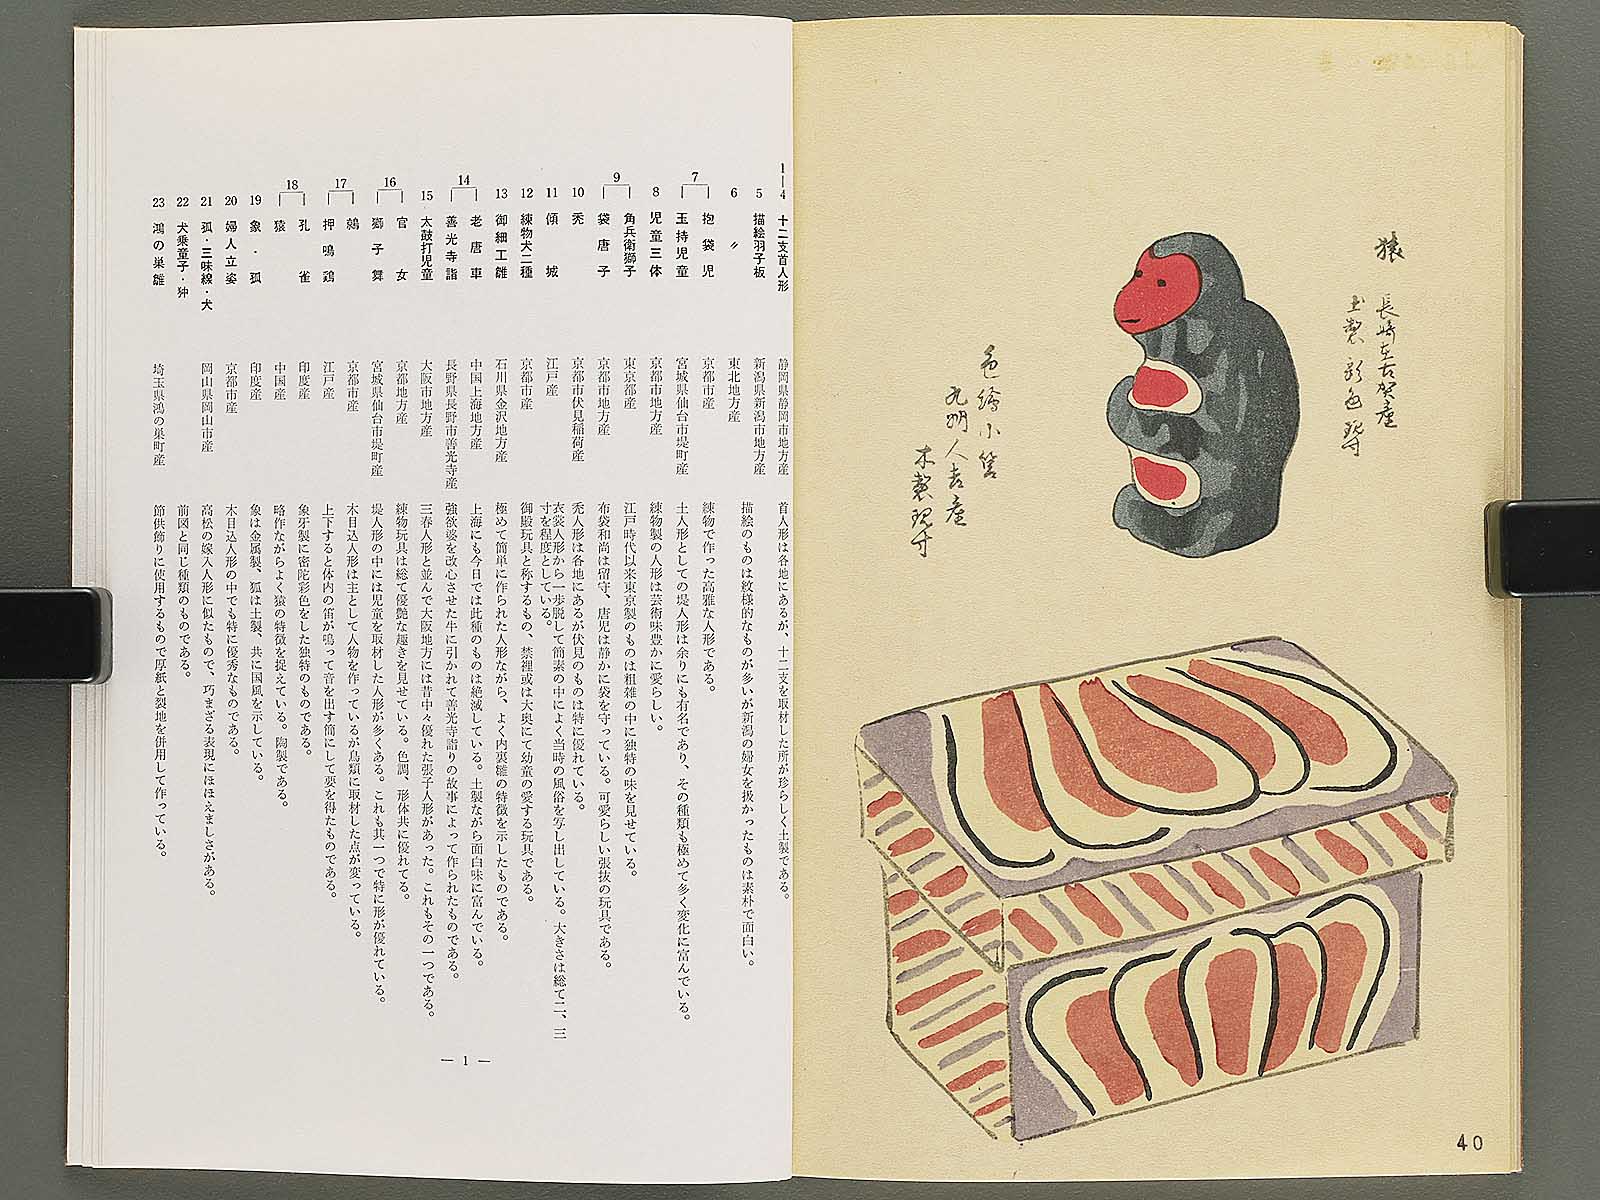 猿
長崎在古賀産
土製彩色現寸
色繪小筥
九州人吉産
木製現寸
40
1―4 十二支首人形 静岡県静岡市地方産 首人形は各地にあるが、十二支を取材した所が珍らしく土製である。
5 描絵羽子板 新潟県新潟市地方産 描絵のものは紋様的なものが多いが新潟の婦女を扱かったものは素朴で面白い。
6 〃 東北地方産
7 抱袋児 京都市産 練物で作った高雅な人形である。
玉持児童 宮城県仙台市堤町産 土人形としての堤人形は余りにも有名であり、その種類も極めて多く変化に富んでいる。
8 児童三体 京都市地方産 練物製の人形は芸術味豊かに愛らしい。
9 角兵衛獅子 東京都産 江戸時代以来東京製のものは粗雑の中に独特の味を見せている。
袋唐子 京都市地方産 布袋和尚は留守、唐児は静かに袋を守っている。可愛らしい張抜の玩具である。
10 禿 京都市伏見稲荷産 禿人形は各地にあるが伏見のものは特に優れている。
11 傾城 江戸産 衣裳人形から一歩脱して簡素の中によく当時の風俗を写し出している。大きさは総て二、三
寸を程度としている。
12 練物犬二種 京都市産 御殿玩具と称するもの、禁裡或は大奥にて幼童の愛する玩具である。
13 御細工雛 石川県金沢地方産 極めて簡単に作られた人形ながら、よく内裏雛の特徴を示したものである。
14 老唐車 中国上海地方産 上海にも今日では此種のものは絶滅している。土製ながら面白味に富んでいる。
善光寺詣 長野県長野市善光寺産 強欲婆を改心させた牛に引かれて善光寺詣りの故事によって作られたものである。
15 太鼓打児童 大阪市地方産 三春人形と並んで大阪地方には昔中々優れた張子人形があった。これもその一つである。
16 官女 京都地方産 練物玩具は総て優艶な趣きを見せている。色調、形体共に優れてる。
獅子舞 宮城県仙台市堤町産 堤人形の中には児童を取材した人形が多くある。これも其一つで特に形が優れている。
17 鶉 京都市産 木目込人形は主として人物を作っているが鳥類に取材した点が変っている。
押鳴鶏 江戸産 上下すると体内の笛が鳴って音を出す簡にして要を得たものである。
18 孔雀 印度産 象牙製に密陀彩色をした独特のものである。
猿 中国産 略作ながらよく猿の特徴を捉えている。陶製である。
19 象・狐 印度産 象は金属製、狐は土製、共に国風を示している。
20 婦人立姿 京都市産 木目込人形の中でも特に優秀なものである。
21 狐・三味線・犬 岡山県岡山市産 高松の嫁入人形に似たもので、巧まざる表現にほほえましさがある。
22 犬乗童子・狆 前図と同じ種類のものである。
23 鴻の巣雛 埼玉県鴻の巣町産 節供飾りに使用するもので厚紙と裂地を併用して作っている。
― 1 ―